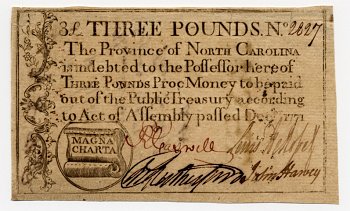 3£ THREE POUNDS. No. 2827
The Province of NORTH CAROLINA
is indebted to the Possessor hereof
THREE POUNDS Proc Money to be paid
out of the Public Treasury according
to Act of Assembly passed Decr. 1771
MAGNA
CHARTA
John Harvey